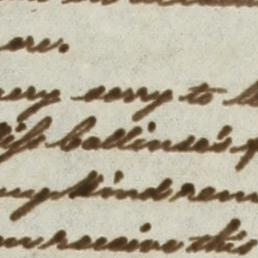 are.
very sorry to
Miss Collinse's
my kind rem
receive this